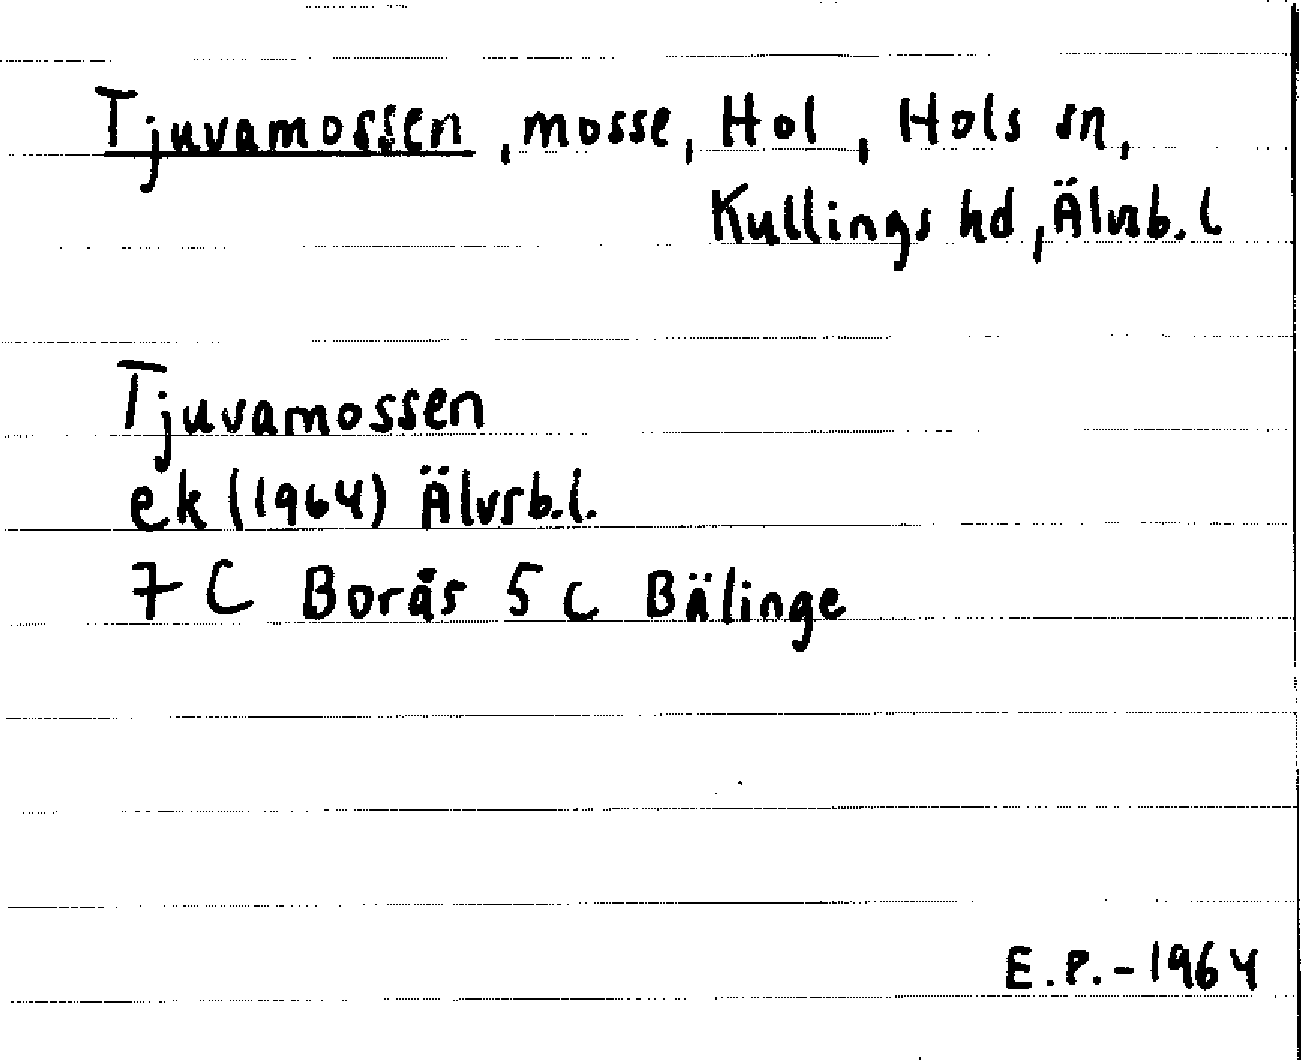 Tjuvamossen, mosse, Hol, Hols sn,
Kullings hd, Älvsb. l
Tjuvamossen
ek (1964) Älvsb.l.
7 C Borås 5 c Bälinge
E.P.-1964